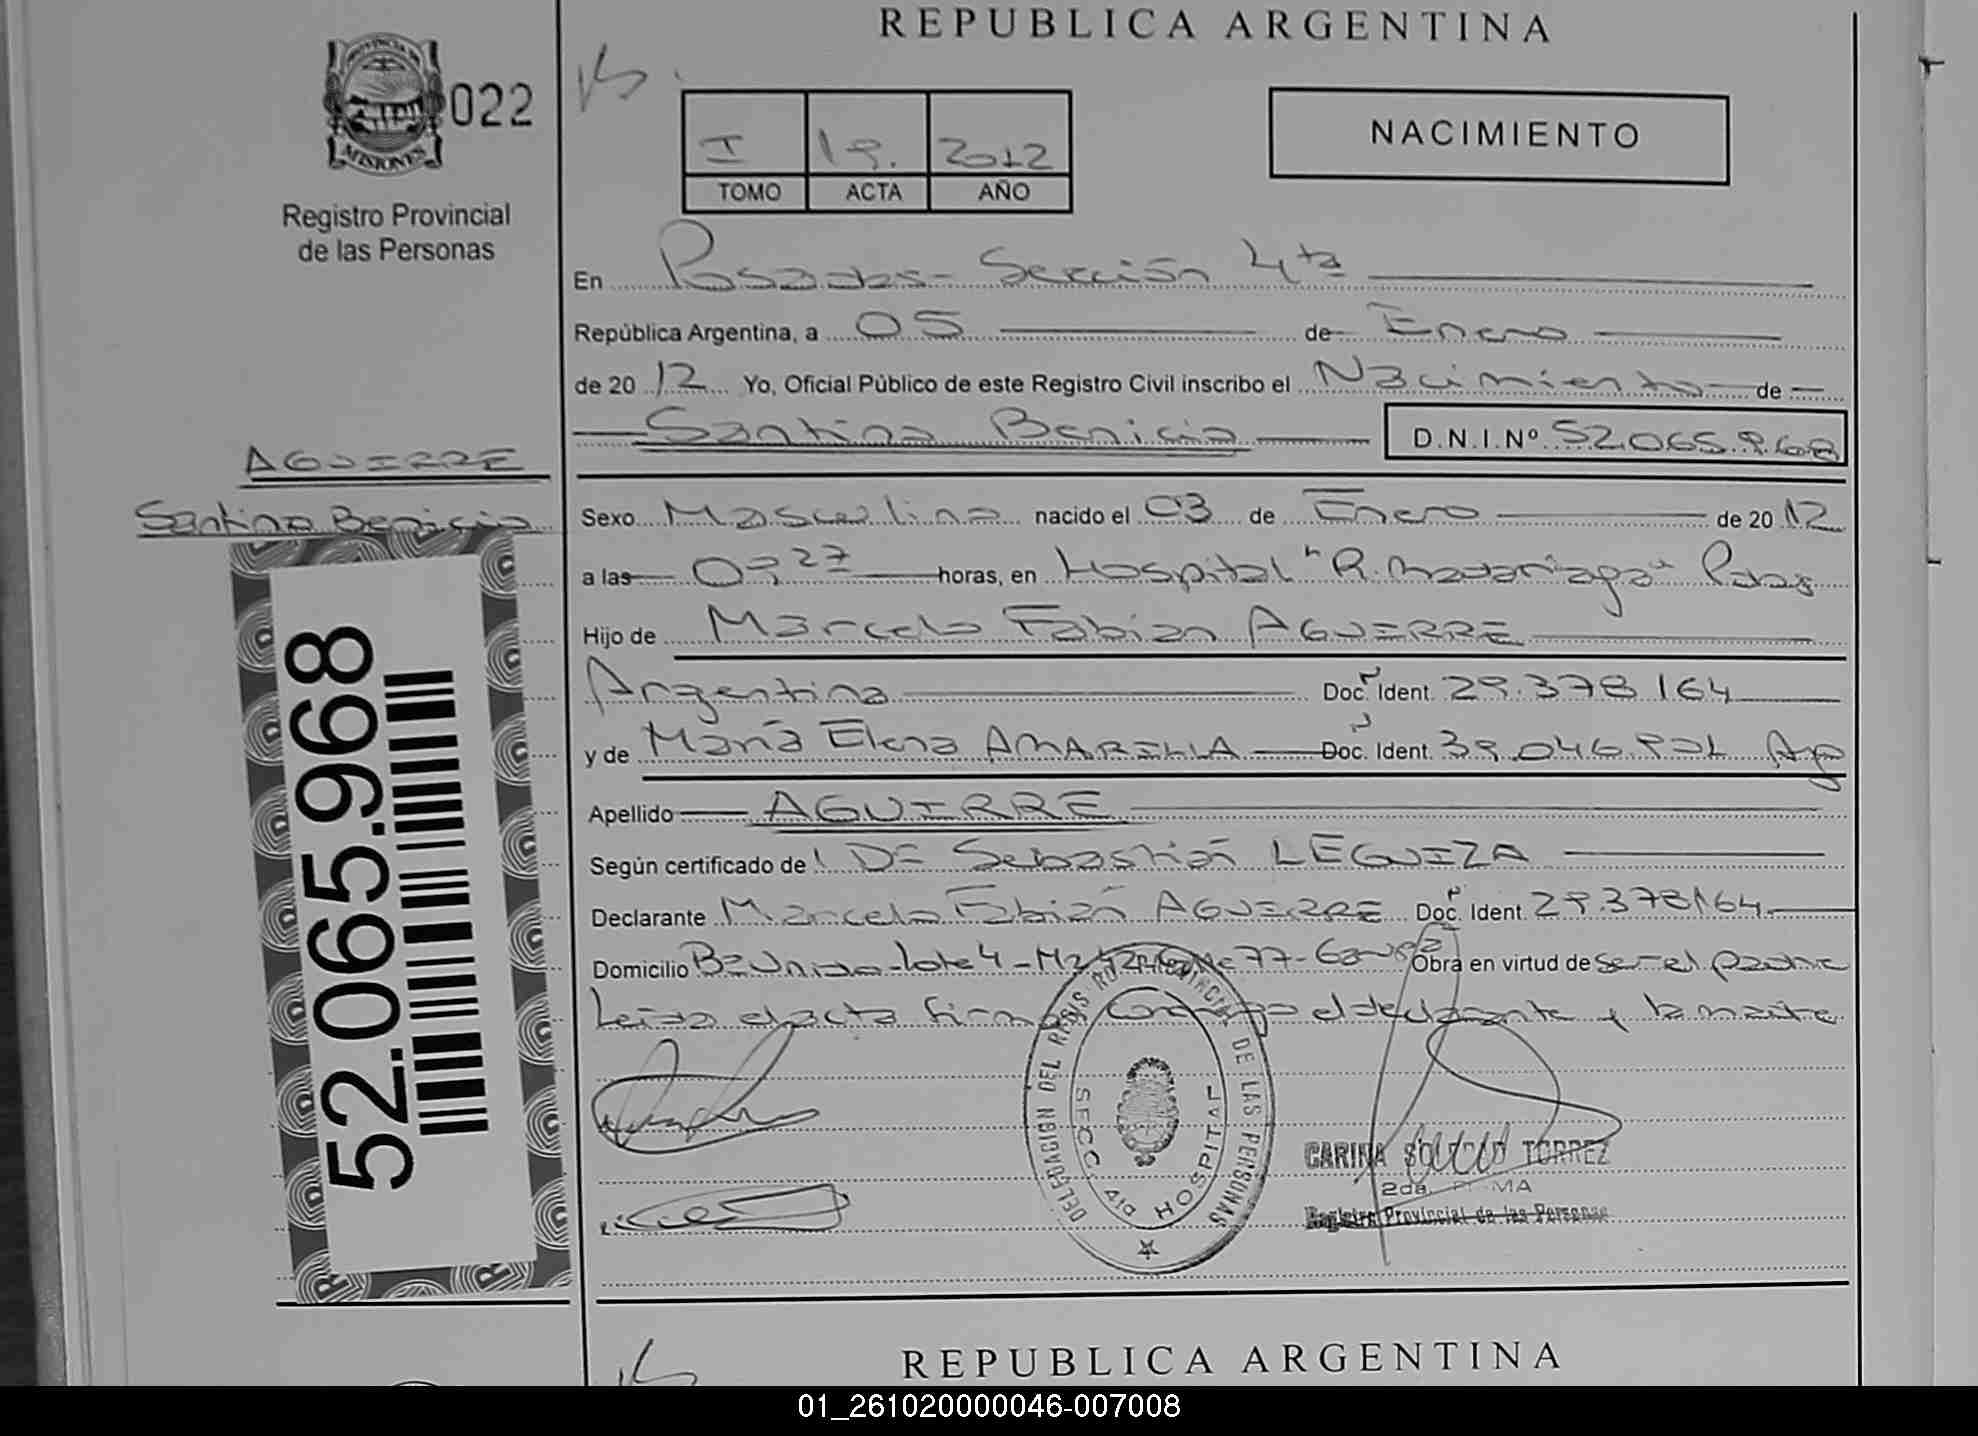 REPUBLICA ARGENTINA
022
MISIONES
Registro Provincial
de las Personas
I 19. 2012
TOMO ACTA AÑO
NACIMIENTO
En Posadas - Sección 4ta
República Argentina, a 05 de Enero
de 2012 Yo, Oficial Público de este Registro Civil inscribo el Nacimiento de
Santino Benicio D.N.I.Nº 52.065.968
AGUIRRE
Santino Benicio
Sexo Masculino nacido el 03 de Enero de 2012
a las horas, en Hospital "R. Madariaga" Pdas
Hijo de Marcelo Fabian AGUIRRE
Argentina Doc. Ident. 29.378.164
y de María Elena AMARILLA Doc. Ident. 39.046.
Apellido AGUIRRE
Según certificado de DE Sebastián LEGUIZA
Declarante Marcelo Fabián AGUIRRE Doc. Ident. 29.378.164
Domicilio Lote 4 - 77 - Obra en virtud de ser el padre
Leida el acta firman conmigo el declarante y la madre
52.065.968
DELEGACION DEL REGISTRO PROVINCIAL DE LAS PERSONAS
SECC 4ta HOSPITAL
CARINA TORREZ
2da.
Registro Provincial de las Personas
REPUBLICA ARGENTINA
01_261020000046-007008